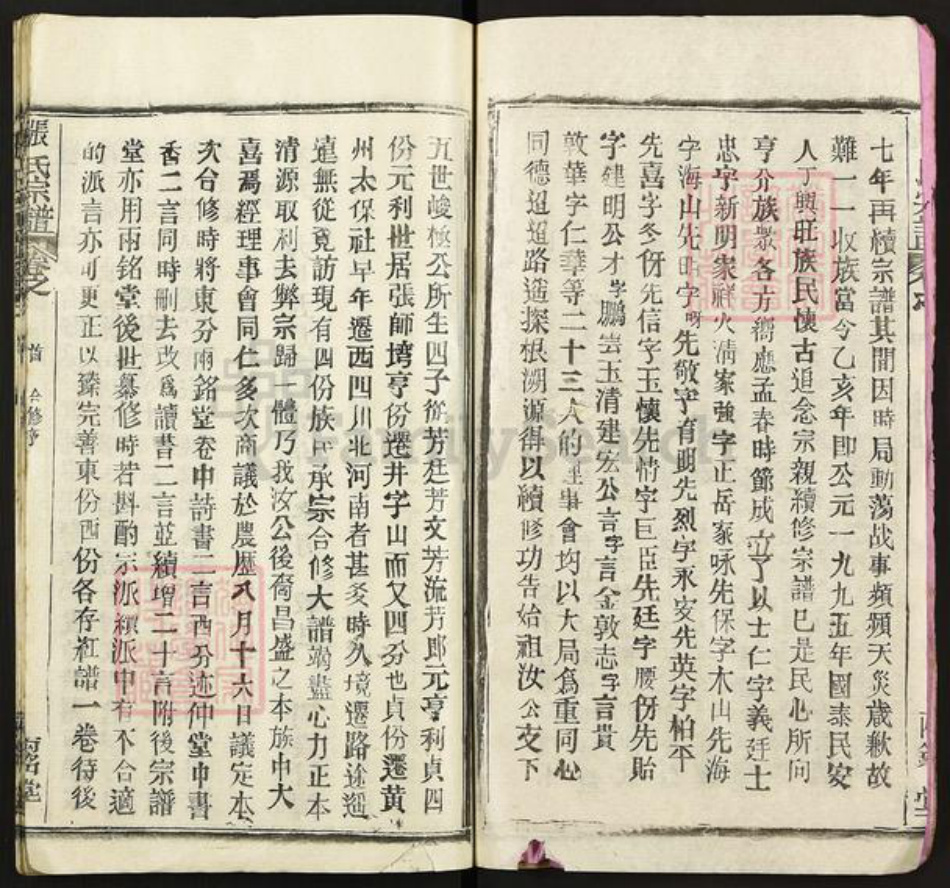 七年再續宗譜其間因時局動荡战事頻頻天災歲歉故
難一一收族當今乙亥年即公元一九九五年國泰民安
人丁興旺族民懷古追念宗親續修宗譜已是民心所向
亨介族眾各方嚮應孟春時節成立了以士仁字義廷士
忠字新明家祥火清家強字正岳家咏先保字木山先海
字海山先昭字明先敬字有明先烈字永安先英字柏平
先喜字冬伢先信字玉懷先情字巨臣先廷字腰伢先貽
字建明公才字鵬雲玉清建宏公言字言金敦志字言貴
敦華字仁華等二十三人的理事會均以大局為重同心
同德迢迢路遥探根溯源得以續修功告始祖汝公支下
五世峻極公所生四子衍芳廷芳文芳流芳即元亨利貞四
份元利世居張師塆亨份遷井字山而又四分也貞份遷黄
州太保社早年遷西四川北河南者甚多時久境遷路途遥
遠無從竟訪現有四份族户承宗合修大譜竭盡心力正本
清源取利去弊宗歸一體乃我汝公後裔昌盛之本族中大
喜焉經理事會同仁多次商議於農歷八月十六日議定本
次合修時將東分兩銘堂卷中詩書二言西分述仲堂中書
香二言同時刪去改爲讀書二言並續增二十言附後宗譜
堂亦用兩銘堂後世纂修時若斟酌宗派續派中有不合適
的派言亦可更正以臻完善東份西份各存紅譜一卷待後
張氏宗譜 卷之首 合修序 兩銘堂